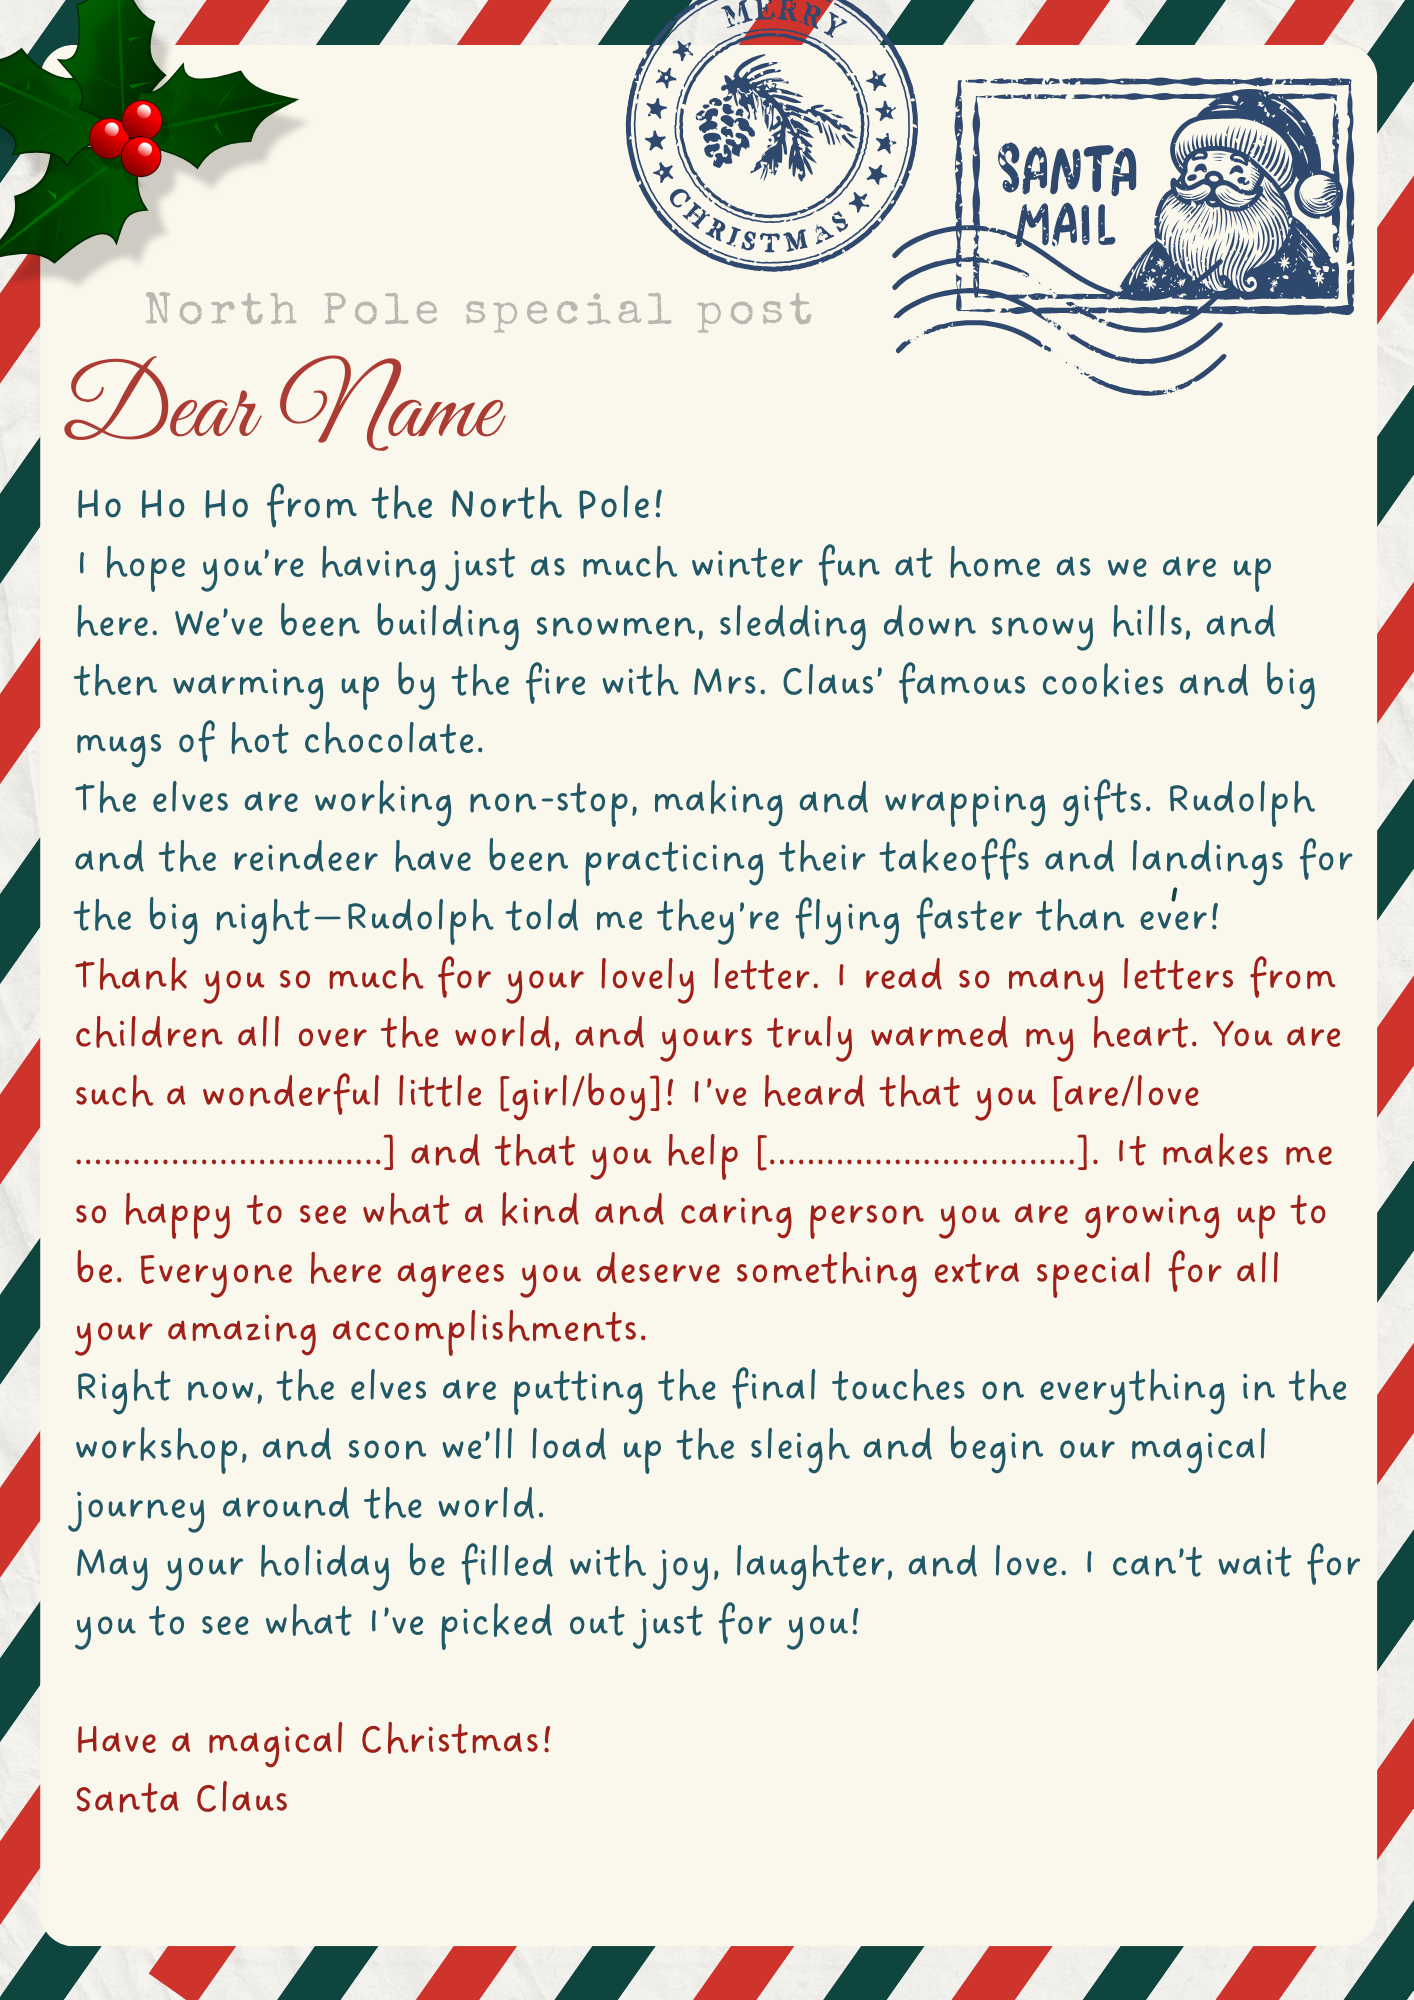 MERRY
CHRISTMAS
SANTA
MAIL
North Pole special post
Dear Name
Ho Ho Ho from the North Pole!
I hope you're having just as much winter fun at home as we are up
here. We've been building snowmen, sledding down snowy hills, and
then warming up by the fire with Mrs. Claus' famous cookies and big
mugs of hot chocolate.
The elves are working non-stop, making and wrapping gifts. Rudolph
and the reindeer have been practicing their takeoffs and landings for
the big night—Rudolph told me they're flying faster than ever!
Thank you so much for your lovely letter. I read so many letters from
children all over the world, and yours truly warmed my heart. You are
such a wonderful little [girl/boy]! I've heard that you [are/love
................................] and that you help [................................]. It makes me
so happy to see what a kind and caring person you are growing up to
be. Everyone here agrees you deserve something extra special for all
your amazing accomplishments.
Right now, the elves are putting the final touches on everything in the
workshop, and soon we'll load up the sleigh and begin our magical
journey around the world.
May your holiday be filled with joy, laughter, and love. I can't wait for
you to see what I've picked out just for you!
Have a magical Christmas!
Santa Claus